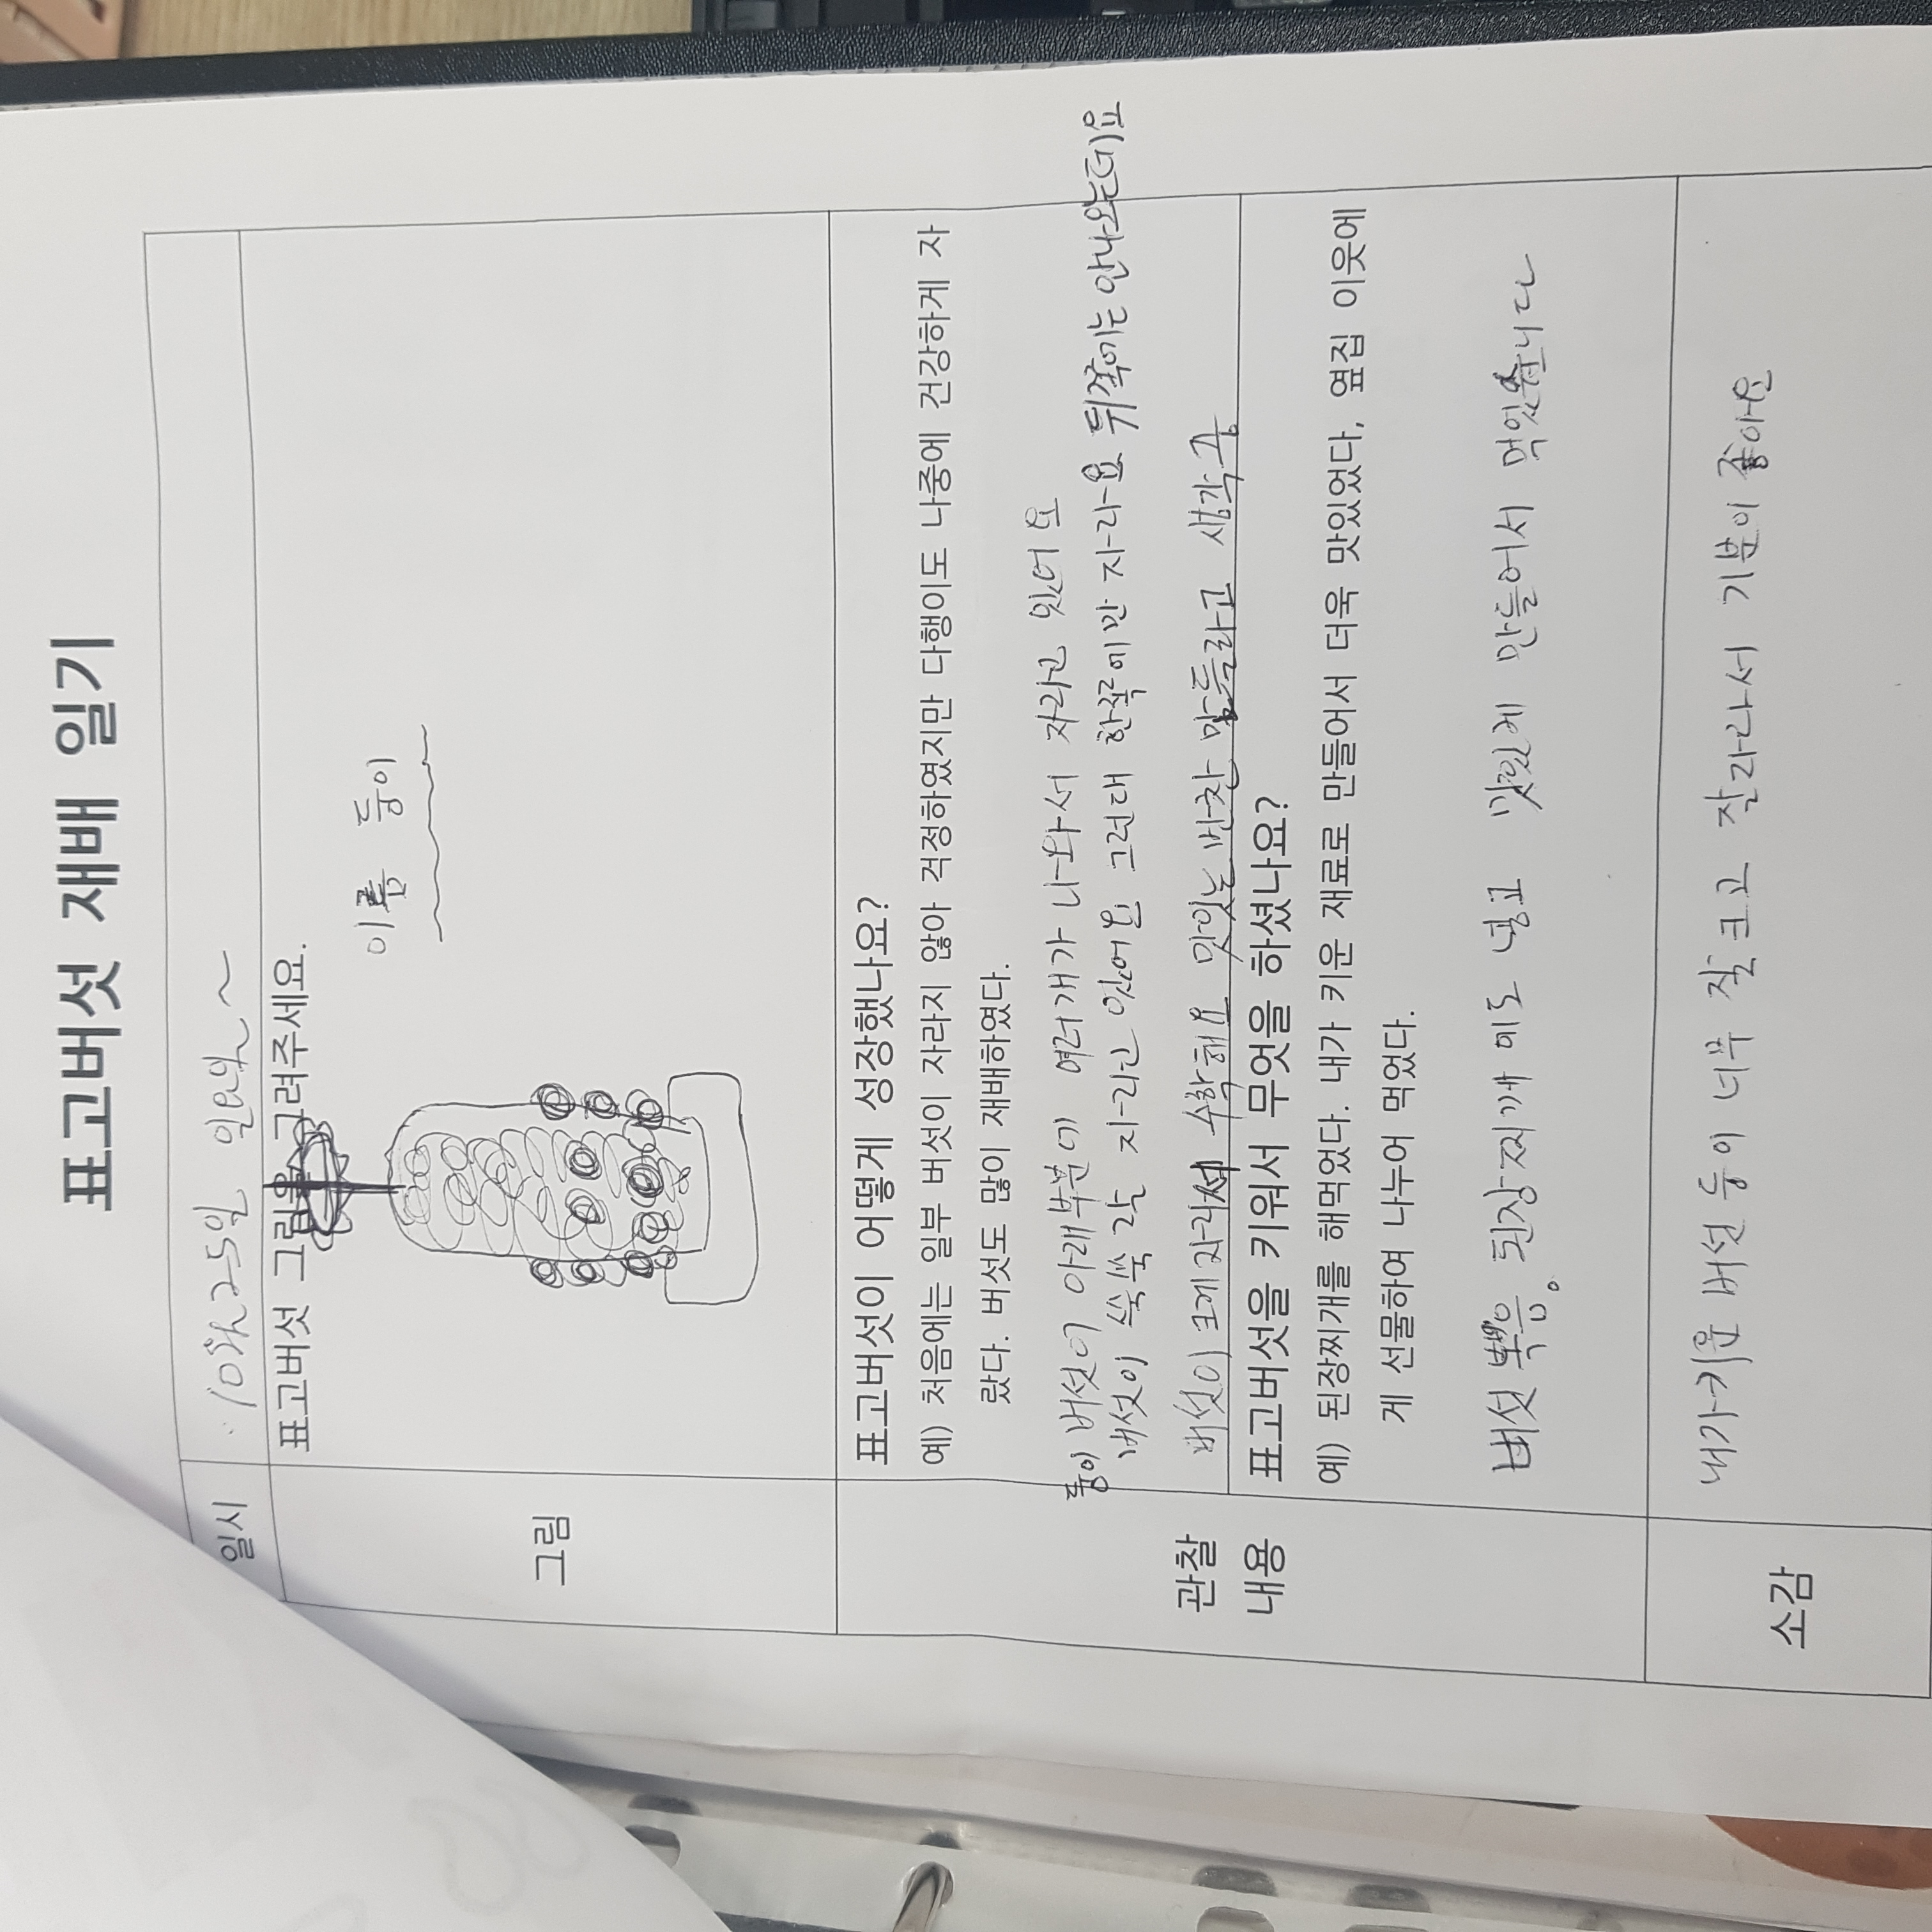 표고버섯 재배 일기
일시
10월 25일 일요일 ~
그림
표고버섯 그림을 그려주세요.
이름 둥이
관찰
내용
표고버섯이 어떻게 성장했나요?
예) 처음에는 일부 버섯이 자라지 않아 걱정하였지만 다행이도 나중에 건강하게 자
랐다. 버섯도 많이 재배하였다.
둥이 버섯이 아래부분에 여러개가 나와서 자라고 있어요
버섯이 쑥쑥 잘 자라고 있어요 그런대 한쪽에만 자라요 뒤쪽에는 안나와는데요
버섯이 크게 자라서 수확해요 맛있는 반찬 만들라고 생각중
표고버섯을 키워서 무엇을 하셨나요?
예) 된장찌개를 해먹었다. 내가 키운 재료로 만들어서 더욱 맛있었다, 옆집 이웃에
게 선물하여 나누어 먹었다.
버섯 볶음 된장찌개에도 넣고 맛있게 만들어서 먹었습니다
소감
내가키운 버섯 둥이 너무 잘크고 잘라라서 기분이 좋아요